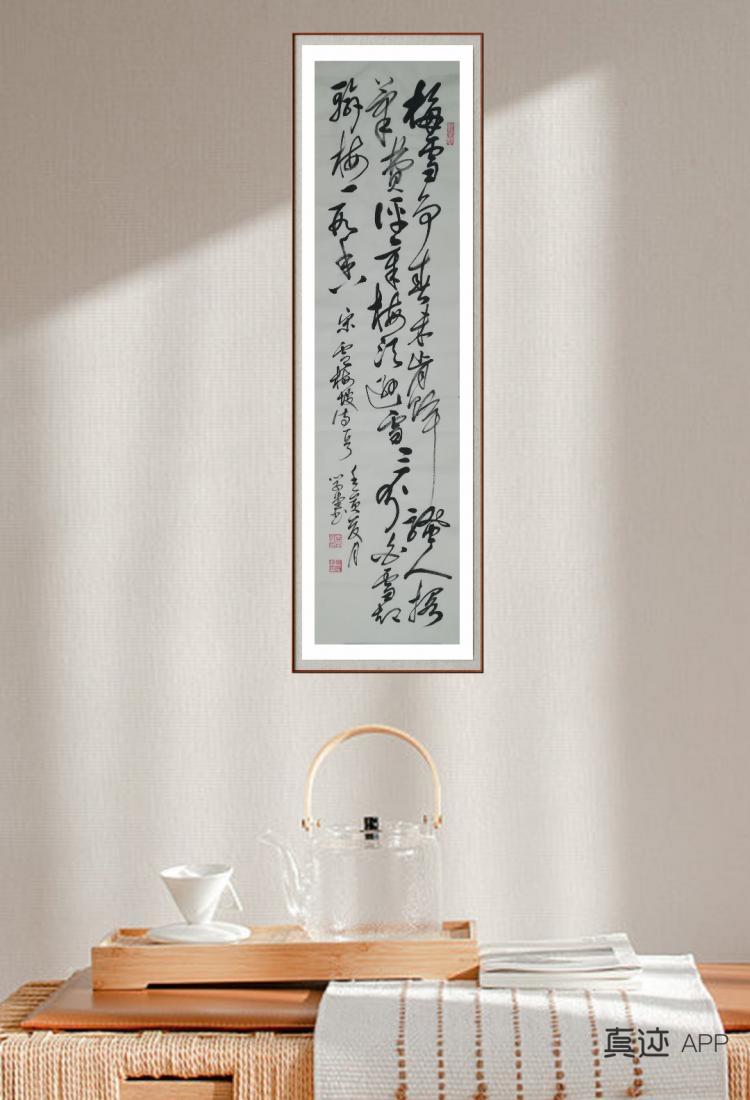 梅雪争春未肯降騷人搁
筆費評章梅须遜雪三分白雪却
輸梅一段香 宋 盧梅坡诗一首
壬寅夏月
真迹 APP